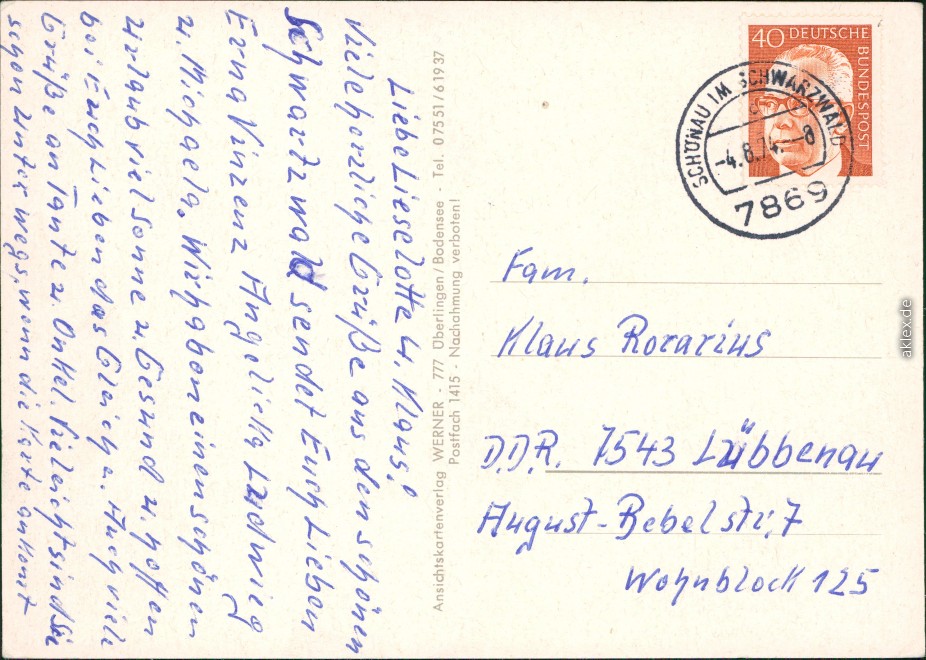 Liebe Lieselotte u. Klaus!
Viele herzliche Grüße aus den schönen
Schwarzwald sendet Euch Lieben
Erna Vinzenz Angelicka Ludwieg
u. Michaela. Wir haben einen schönen
Urlaub viel Sonne u. Gesund u. hoffen
bei Euch Lieben das Gleiche. Auch viele
Grüße an Tante u. Onkel. Vieleicht sind Sie
schon unter wegs, wenn die Karte ankomt
Ansichtskartenverlag WERNER - 777 Überlingen/Bodensee - Tel. 07551/61937
Postfach 1415 - Nachahmung verboten!
40 DEUTSCHE
BUNDESPOST
SCHÖNAU IM SCHWARZWALD
-4.8.74.-8
7869
Fam.
Klaus Rorarius
D.D.R. 7543 Lübbenau
August-Bebelstr. 7
Wohnblock 125
aklex.de